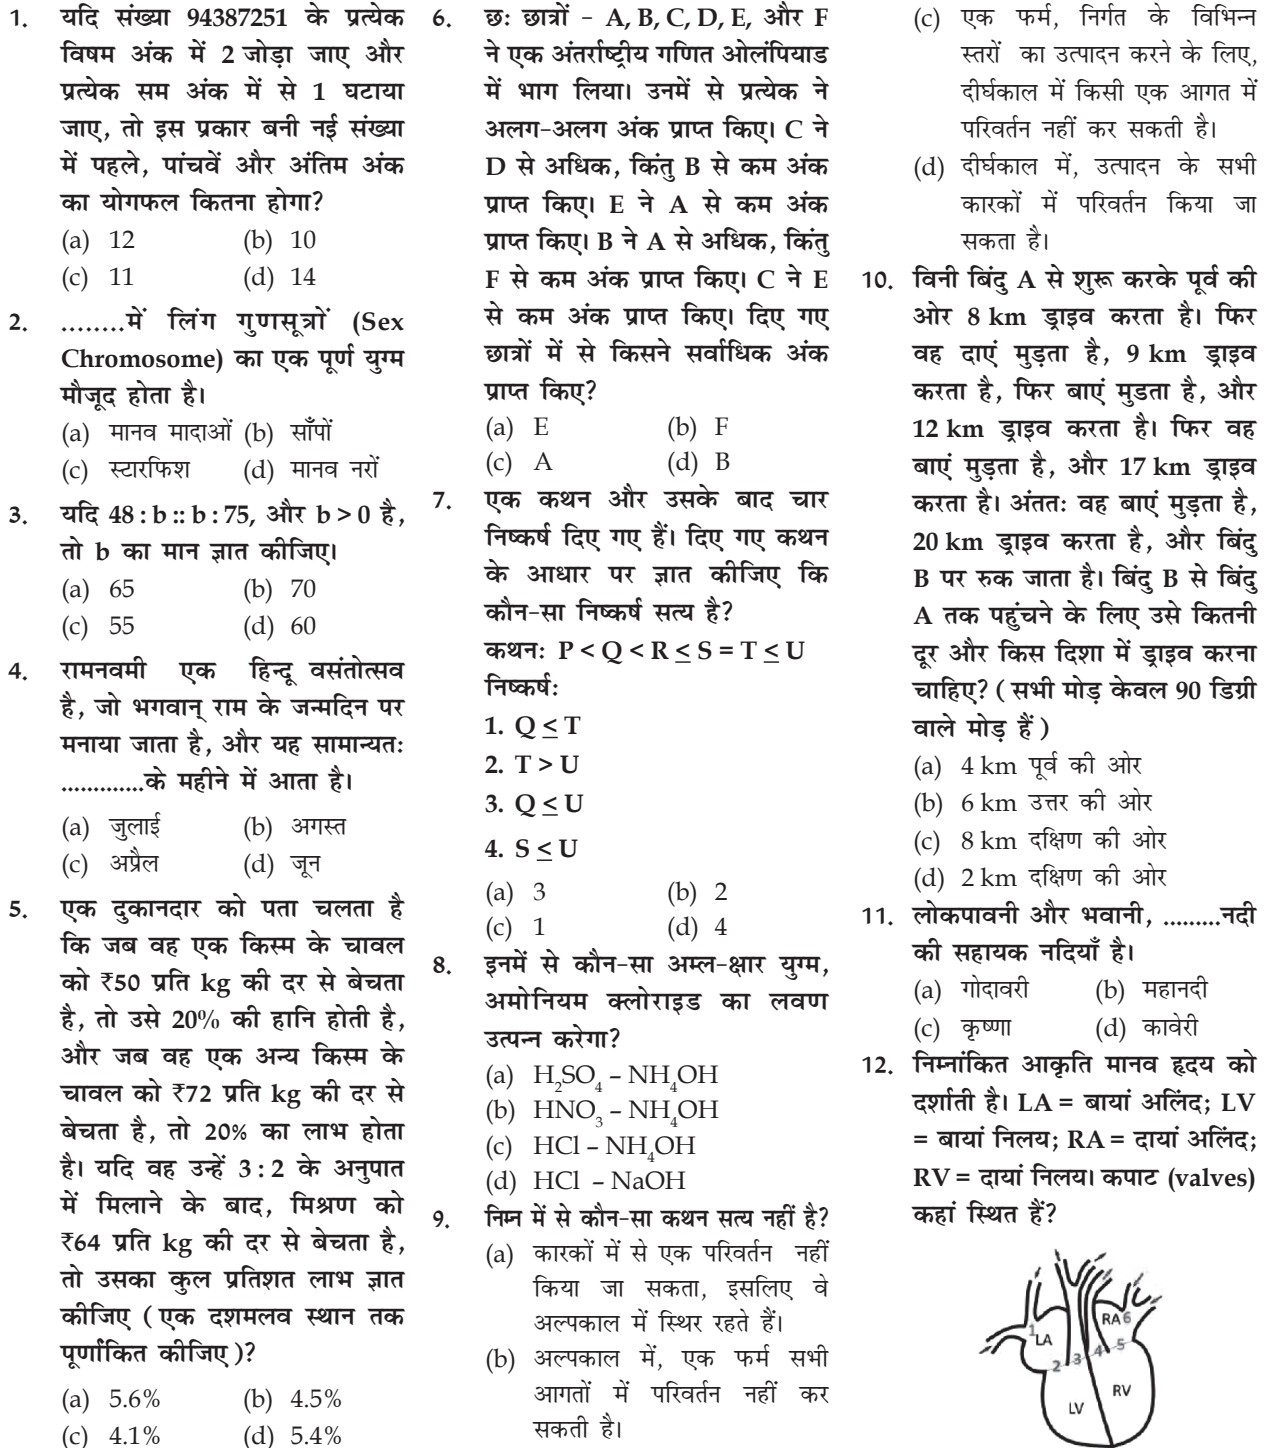 1. यदि संख्या 94387251 के प्रत्येक
विषम अंक में 2 जोड़ा जाए और
प्रत्येक सम अंक में से 1 घटाया
जाए, तो इस प्रकार बनी नई संख्या
में पहले, पांचवें और अंतिम अंक
का योगफल कितना होगा?
(a) 12 (b) 10
(c) 11 (d) 14
2. ........में लिंग गुणसूत्रों (Sex
Chromosome) का एक पूर्ण युग्म
मौजूद होता है।
(a) मानव मादाओं (b) साँपों
(c) स्टारफिश (d) मानव नरों
3. यदि 48 : b :: b : 75, और b > 0 है,
तो b का मान ज्ञात कीजिए।
(a) 65 (b) 70
(c) 55 (d) 60
4. रामनवमी एक हिन्दू वसंतोत्सव
है, जो भगवान् राम के जन्मदिन पर
मनाया जाता है, और यह सामान्यतः
.............के महीने में आता है।
(a) जुलाई (b) अगस्त
(c) अप्रैल (d) जून
5. एक दुकानदार को पता चलता है
कि जब वह एक किस्म के चावल
को ₹50 प्रति kg की दर से बेचता
है, तो उसे 20% की हानि होती है,
और जब वह एक अन्य किस्म के
चावल को ₹72 प्रति kg की दर से
बेचता है, तो 20% का लाभ होता
है। यदि वह उन्हें 3 : 2 के अनुपात
में मिलाने के बाद, मिश्रण को
₹64 प्रति kg की दर से बेचता है,
तो उसका कुल प्रतिशत लाभ ज्ञात
कीजिए (एक दशमलव स्थान तक
पूर्णांकित कीजिए)?
(a) 5.6% (b) 4.5%
(c) 4.1% (d) 5.4%
6. छः छात्रों - A, B, C, D, E, और F
ने एक अंतर्राष्ट्रीय गणित ओलंपियाड
में भाग लिया। उनमें से प्रत्येक ने
अलग-अलग अंक प्राप्त किए। C ने
D से अधिक, किंतु B से कम अंक
प्राप्त किए। E ने A से कम अंक
प्राप्त किए। B ने A से अधिक, किंतु
F से कम अंक प्राप्त किए। C ने E
से कम अंक प्राप्त किए। दिए गए
छात्रों में से किसने सर्वाधिक अंक
प्राप्त किए?
(a) E (b) F
(c) A (d) B
7. एक कथन और उसके बाद चार
निष्कर्ष दिए गए हैं। दिए गए कथन
के आधार पर ज्ञात कीजिए कि
कौन-सा निष्कर्ष सत्य है?
कथनः P < Q < R ≤ S = T ≤ U
निष्कर्षः
1. Q ≤ T
2. T > U
3. Q ≤ U
4. S ≤ U
(a) 3 (b) 2
(c) 1 (d) 4
8. इनमें से कौन-सा अम्ल-क्षार युग्म,
अमोनियम क्लोराइड का लवण
उत्पन्न करेगा?
(a) H₂SO₄ – NH₄OH
(b) HNO₃ – NH₄OH
(c) HCl – NH₄OH
(d) HCl – NaOH
9. निम्न में से कौन-सा कथन सत्य नहीं है?
(a) कारकों में से एक परिवर्तन नहीं
किया जा सकता, इसलिए वे
अल्पकाल में स्थिर रहते हैं।
(b) अल्पकाल में, एक फर्म सभी
आगतों में परिवर्तन नहीं कर
सकती है।
(c) एक फर्म, निर्गत के विभिन्न
स्तरों का उत्पादन करने के लिए,
दीर्घकाल में किसी एक आगत में
परिवर्तन नहीं कर सकती है।
(d) दीर्घकाल में, उत्पादन के सभी
कारकों में परिवर्तन किया जा
सकता है।
10. विनी बिंदु A से शुरू करके पूर्व की
ओर 8 km ड्राइव करता है। फिर
वह दाएं मुड़ता है, 9 km ड्राइव
करता है, फिर बाएं मुडता है, और
12 km ड्राइव करता है। फिर वह
बाएं मुड़ता है, और 17 km ड्राइव
करता है। अंततः वह बाएं मुड़ता है,
20 km ड्राइव करता है, और बिंदु
B पर रुक जाता है। बिंदु B से बिंदु
A तक पहुंचने के लिए उसे कितनी
दूर और किस दिशा में ड्राइव करना
चाहिए? (सभी मोड़ केवल 90 डिग्री
वाले मोड़ हैं)
(a) 4 km पूर्व की ओर
(b) 6 km उत्तर की ओर
(c) 8 km दक्षिण की ओर
(d) 2 km दक्षिण की ओर
11. लोकपावनी और भवानी, .........नदी
की सहायक नदियाँ है।
(a) गोदावरी (b) महानदी
(c) कृष्णा (d) कावेरी
12. निम्नांकित आकृति मानव हृदय को
दर्शाती है। LA = बायां अलिंद; LV
= बायां निलय; RA = दायां अलिंद;
RV = दायां निलय। कपाट (valves)
कहां स्थित हैं?
1 LA RA 6
2 3 4 5
LV RV